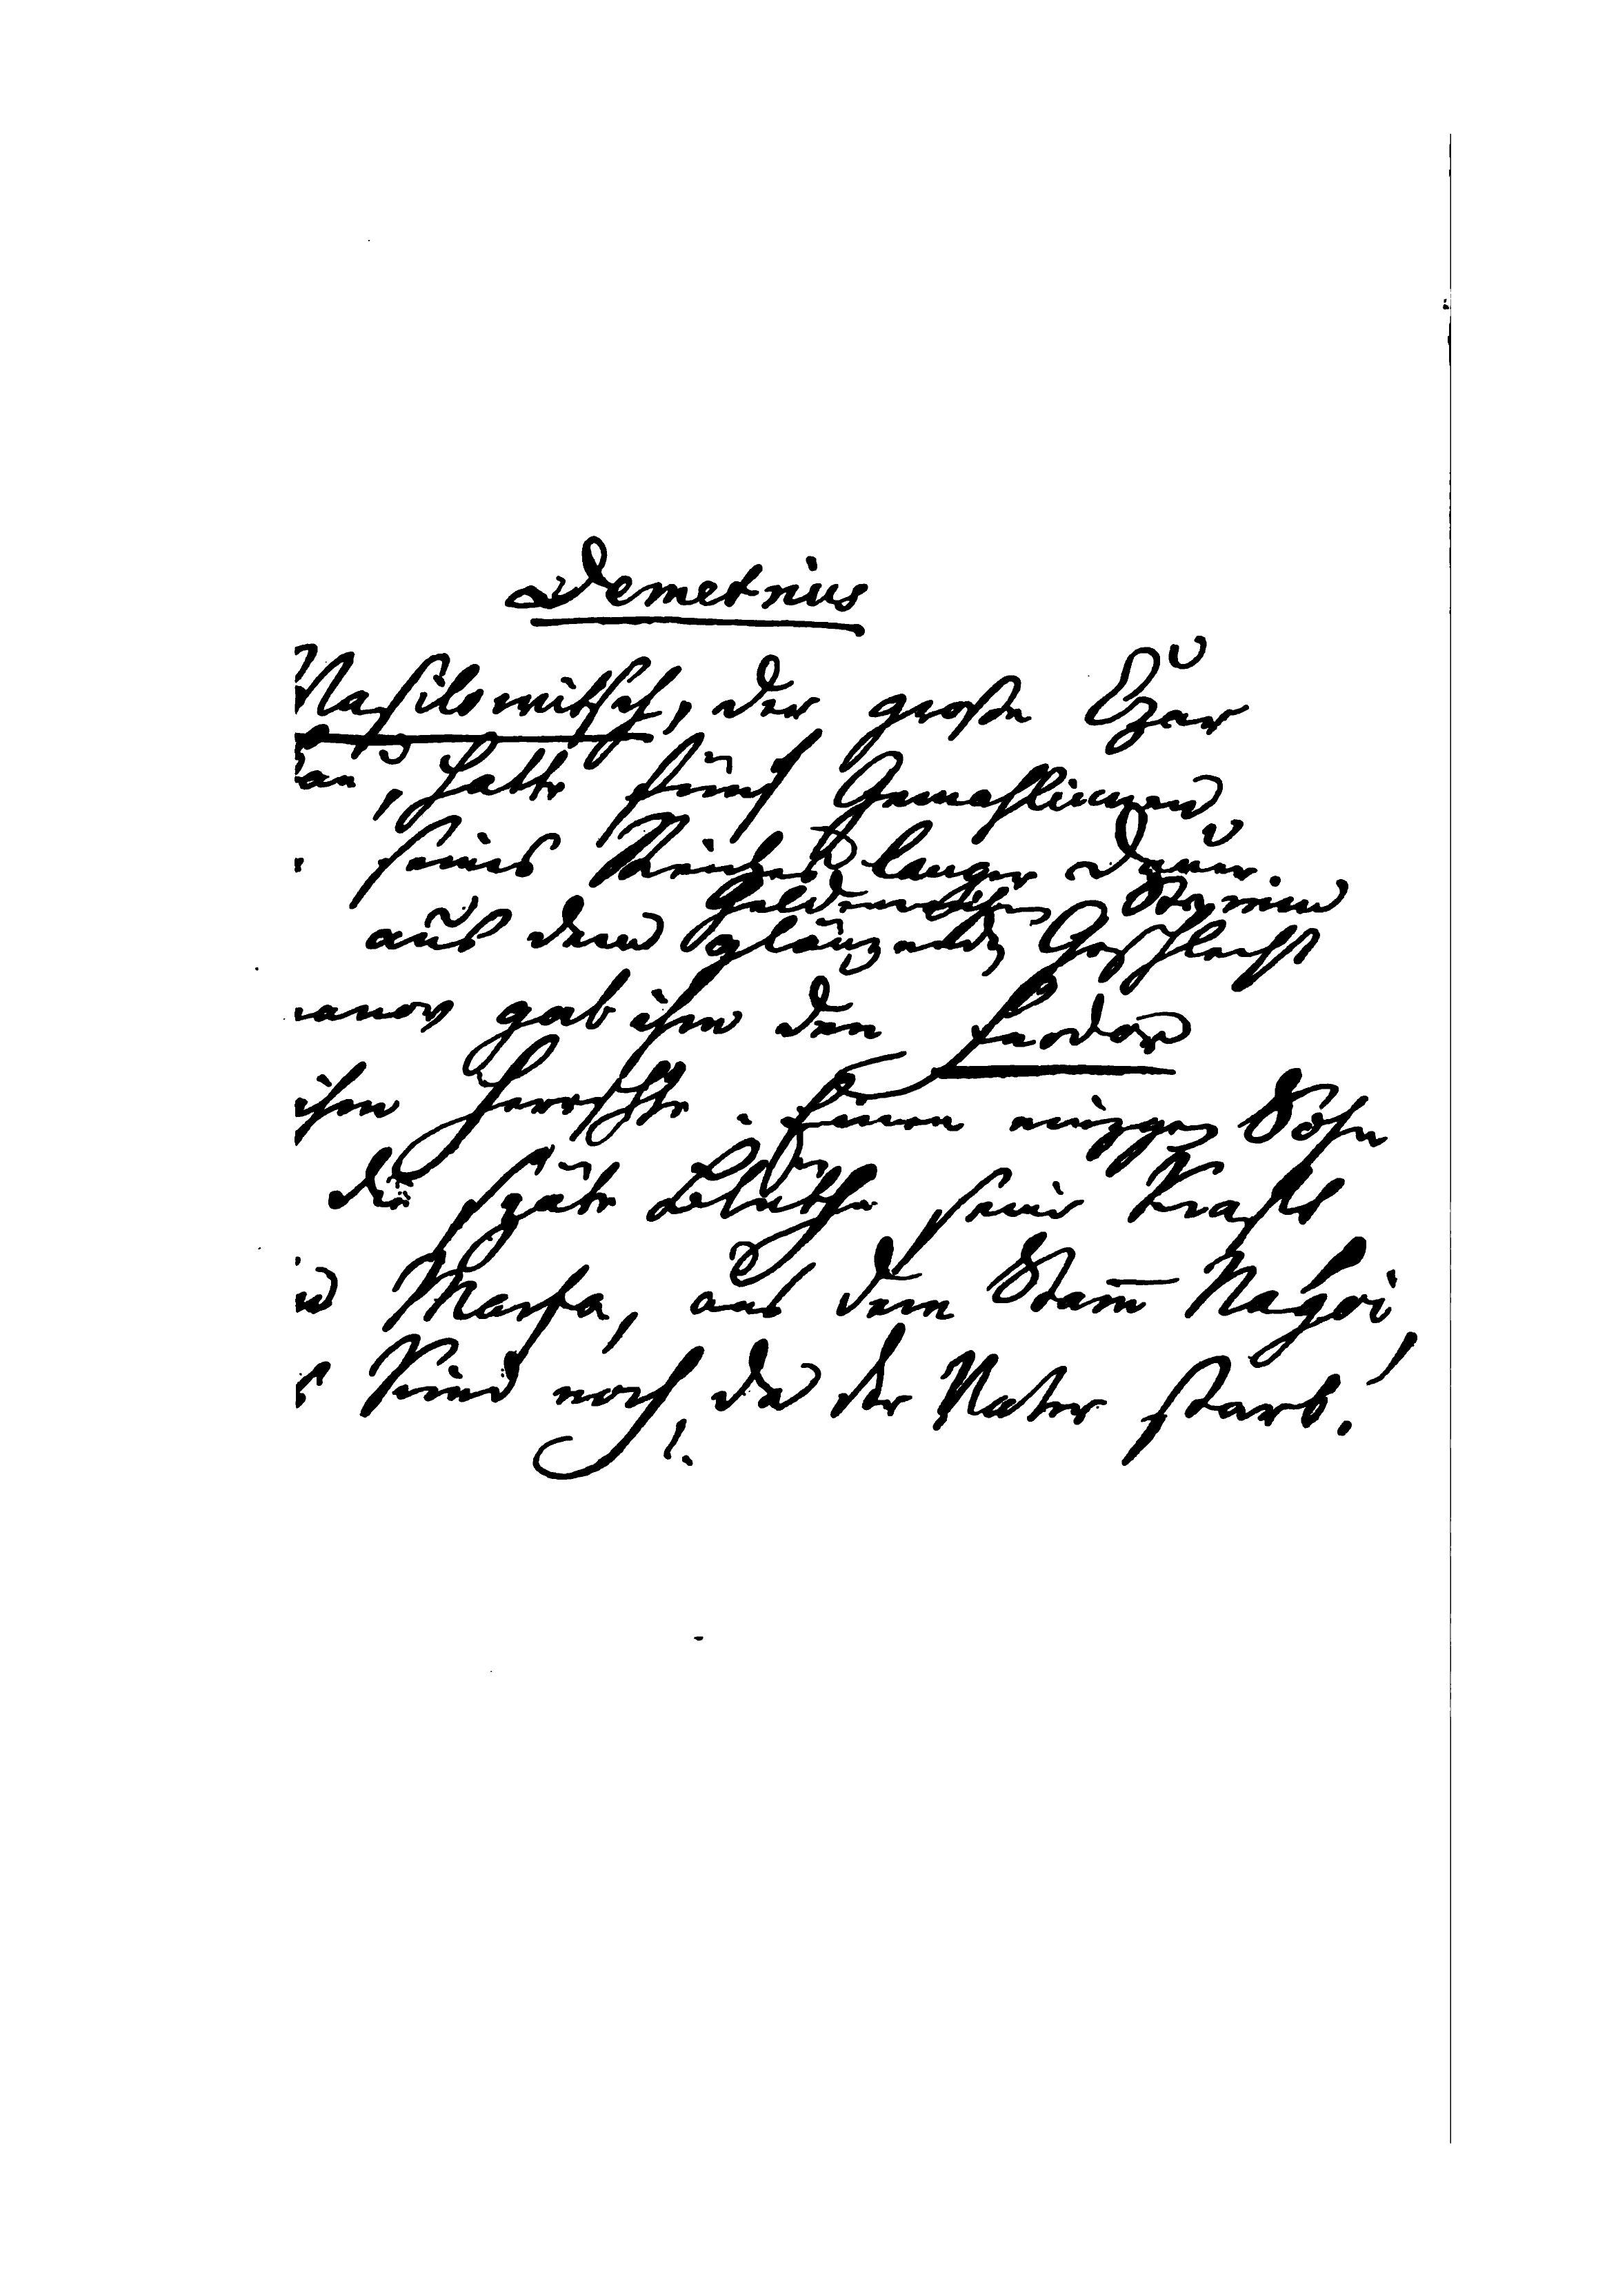 Demetrius
Wasilowitsch, der große Czar
an, hatte fünf Gemahlinnen
seines Reiches langer Dauer.
Heldenreichen Stamm
aus dem glänzenden Geschlecht
manov gab ihm den Feodor
ihm herrschte. Einen einzgen Sohn
die späte Blüthe seiner Kraft
Marfa, aus dem Stam̄ Nagoi,
Kind noch, da der Vater starb!